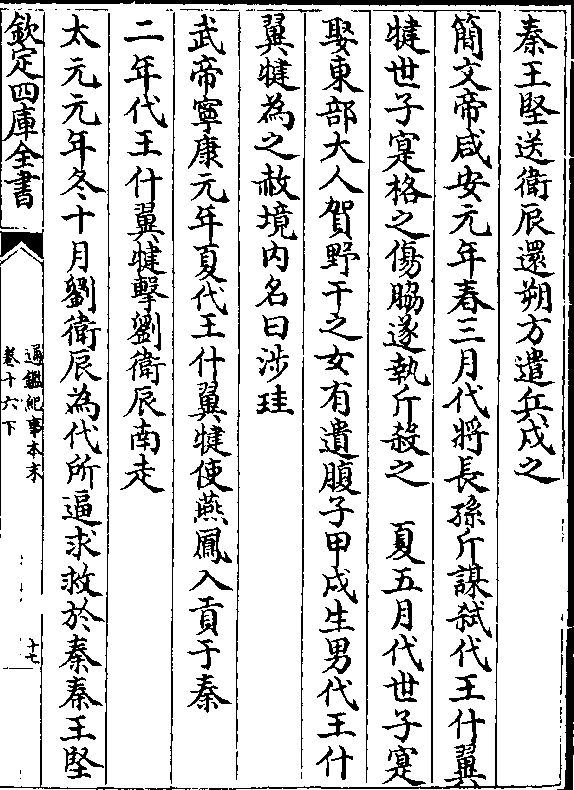 秦王堅送衛辰還朔方遣兵戍之
簡文帝咸安元年春三月代將長孫斤謀弑代王什翼
犍世子寔格之傷脇遂執斤殺之　夏五月代世子寔
娶東部大人賀野干之女有遺腹子甲戌生男代王什
翼犍為之赦境内名曰涉珪
武帝寧康元年夏代王什翼犍使燕鳳入貢于秦
二年代王什翼犍擊劉衛辰南走
太元元年冬十月劉衛辰為代所逼求救於秦秦王堅
欽定四庫全書
通鑑紀事本末
卷十六下
十七